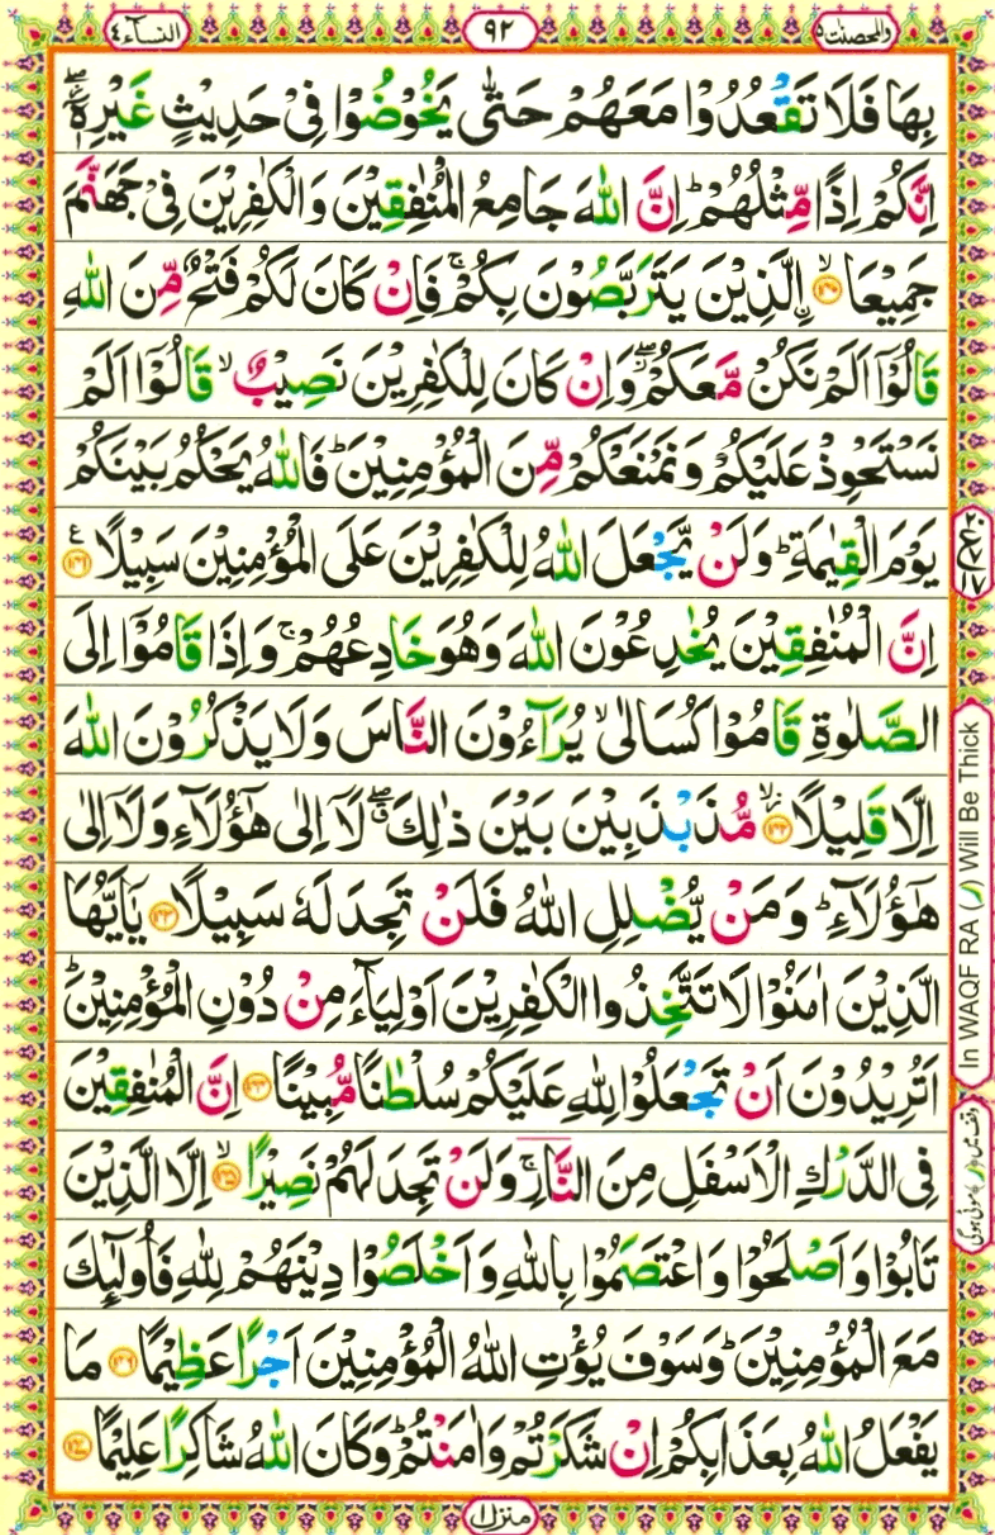 النسآء ٤
٩٢
والمحصنت ٥
بِهَا فَلَا تَقْعُدُوْا مَعَهُمْ حَتّٰى يَخُوْضُوْا فِىْ حَدِيْثٍ غَيْرِهٖۤ ۖ
اِنَّكُمْ اِذًا مِّثْلُهُمْ ؕ اِنَّ اللّٰهَ جَامِعُ الْمُنٰفِقِيْنَ وَالْكٰفِرِيْنَ فِىْ جَهَنَّمَ
جَمِيْعَا ۙ‏ ﴿۱۴۰﴾ اۨلَّذِيْنَ يَتَرَبَّصُوْنَ بِكُمْ ۚ فَاِنْ كَانَ لَكُمْ فَتْحٌ مِّنَ اللّٰهِ
قَالُوْۤا اَلَمْ نَكُنْ مَّعَكُمْ ۖ وَاِنْ كَانَ لِلْكٰفِرِيْنَ نَصِيْبٌ ۙ قَالُوْۤا اَلَمْ
نَسْتَحْوِذْ عَلَيْكُمْ وَنَمْنَعْكُمْ مِّنَ الْمُؤْمِنِيْنَ ؕ فَاللّٰهُ يَحْكُمُ بَيْنَكُمْ
يَوْمَ الْقِيٰمَةِ ؕ وَلَنْ يَّجْعَلَ اللّٰهُ لِلْكٰفِرِيْنَ عَلَى الْمُؤْمِنِيْنَ سَبِيْلًا ﴿۱۴۱﴾ ع
اِنَّ الْمُنٰفِقِيْنَ يُخٰدِعُوْنَ اللّٰهَ وَهُوَ خَادِعُهُمْ ۚ وَاِذَا قَامُوْۤا اِلَى
الصَّلٰوةِ قَامُوْا كُسَالٰى ۙ يُرَآءُوْنَ النَّاسَ وَلَا يَذْكُرُوْنَ اللّٰهَ
اِلَّا قَلِيْلًا ۙ ﴿۱۴۲﴾ مُّذَبْذَبِيْنَ بَيْنَ ذٰلِكَ ۖ ق لَاۤ اِلٰى هٰٓؤُلَآءِ وَلَاۤ اِلٰى
هٰٓؤُلَآءِ ؕ وَمَنْ يُّضْلِلِ اللّٰهُ فَلَنْ تَجِدَ لَهٗ سَبِيْلًا ﴿۱۴۳﴾ يٰۤاَيُّهَا
الَّذِيْنَ اٰمَنُوْا لَا تَتَّخِذُوا الْكٰفِرِيْنَ اَوْلِيَآءَ مِنْ دُوْنِ الْمُؤْمِنِيْنَ ؕ
اَتُرِيْدُوْنَ اَنْ تَجْعَلُوْا لِلّٰهِ عَلَيْكُمْ سُلْطٰنًا مُّبِيْنًا ﴿۱۴۴﴾ اِنَّ الْمُنٰفِقِيْنَ
فِى الدَّرْكِ الْاَسْفَلِ مِنَ النَّارِ ۚ وَلَنْ تَجِدَ لَهُمْ نَصِيْرًا ۙ ﴿۱۴۵﴾ اِلَّا الَّذِيْنَ
تَابُوْا وَاَصْلَحُوْا وَاعْتَصَمُوْا بِاللّٰهِ وَاَخْلَصُوْا دِيْنَهُمْ لِلّٰهِ فَاُولٰٓئِكَ
مَعَ الْمُؤْمِنِيْنَ ؕ وَسَوْفَ يُؤْتِ اللّٰهُ الْمُؤْمِنِيْنَ اَجْرًا عَظِيْمًا ﴿۱۴۶﴾ مَا
يَفْعَلُ اللّٰهُ بِعَذَابِكُمْ اِنْ شَكَرْتُمْ وَاٰمَنْتُمْ ؕ وَكَانَ اللّٰهُ شَاكِرًا عَلِيْمًا ﴿۱۴۷﴾
منزل ١
In WAQF RA (ر) Will Be Thick